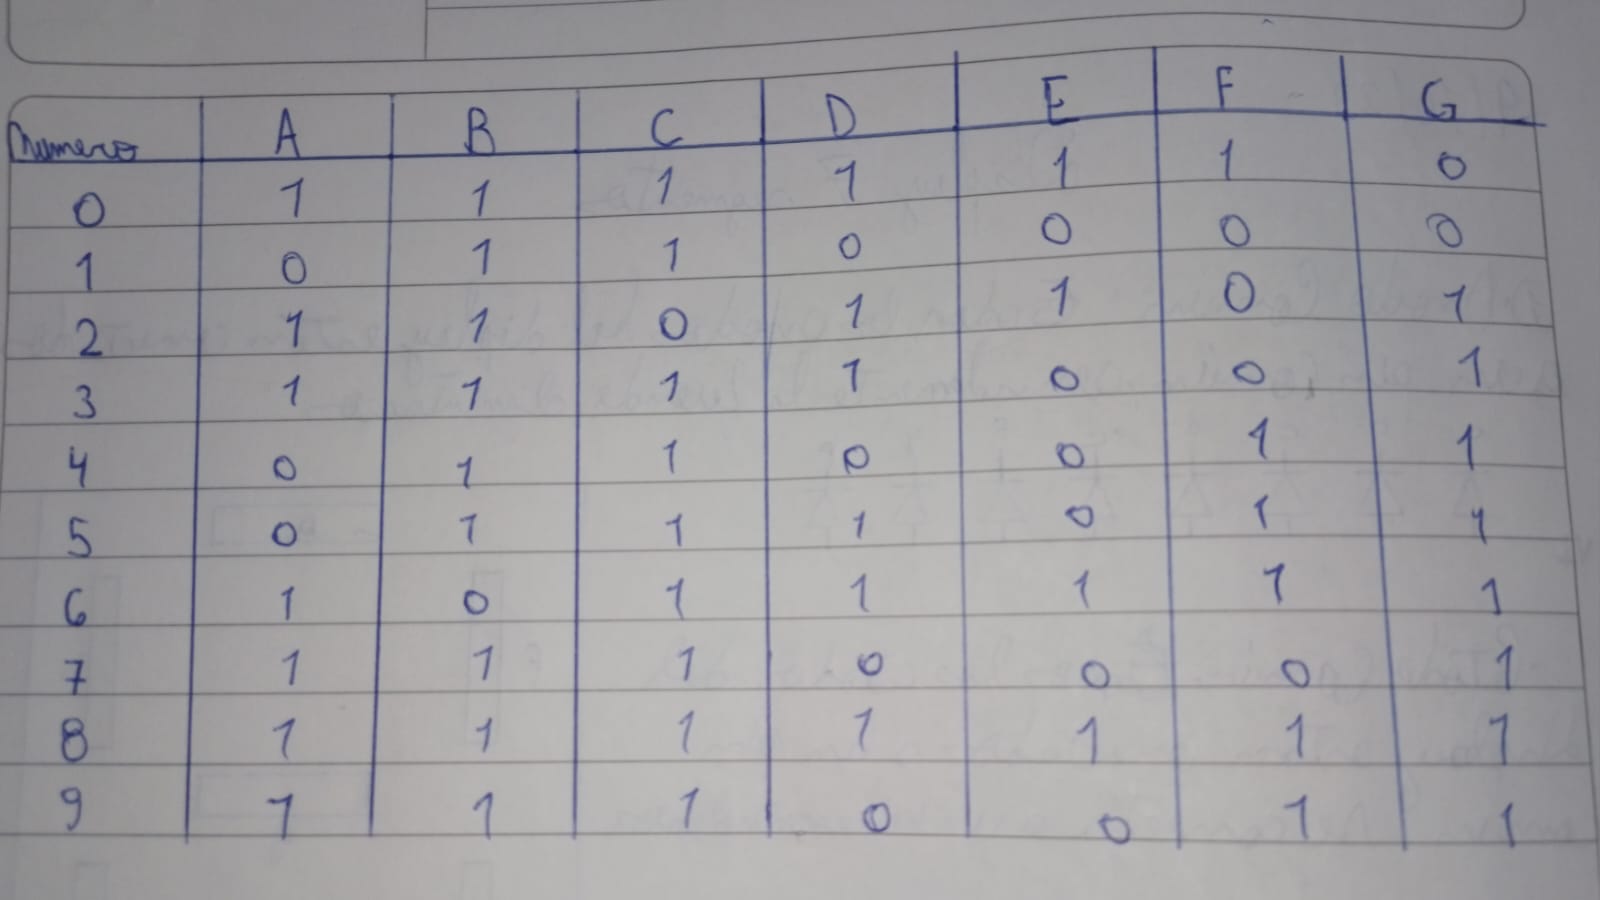 Numero A B C D E F G
0 1 1 1 1 1 1 0
1 0 1 1 0 0 0 0
2 1 1 0 1 1 0 1
3 1 1 1 1 0 0 1
4 0 1 1 0 0 1 1
5 0 1 1 1 0 1 1
6 1 0 1 1 1 1 1
7 1 1 1 0 0 0 1
8 1 1 1 1 1 1 1
9 1 1 1 0 0 1 1